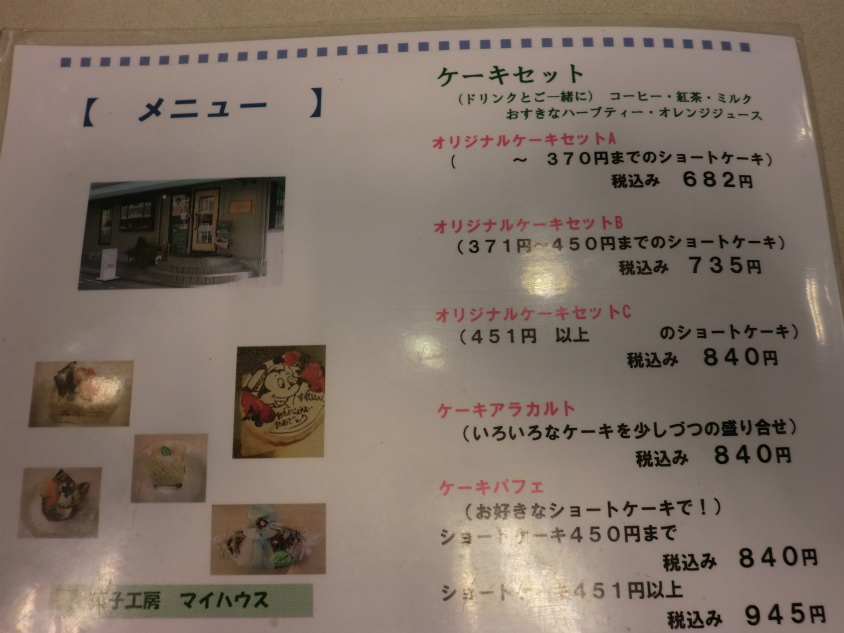 【 メニュー 】
菓子工房 マイハウス
ケーキセット
（ドリンクとご一緒に） コーヒー・紅茶・ミルク
おすきなハーブティー・オレンジジュース
オリジナルケーキセットA
（ ～ 370円までのショートケーキ）
税込み 682円
オリジナルケーキセットB
（371円～450円までのショートケーキ）
税込み 735円
オリジナルケーキセットC
（451円 以上 のショートケーキ）
税込み 840円
ケーキアラカルト
（いろいろなケーキを少しづつの盛り合せ）
税込み 840円
ケーキパフェ
（お好きなショートケーキで！）
ショートケーキ450円まで
税込み 840円
ショートケーキ451円以上
税込み 945円